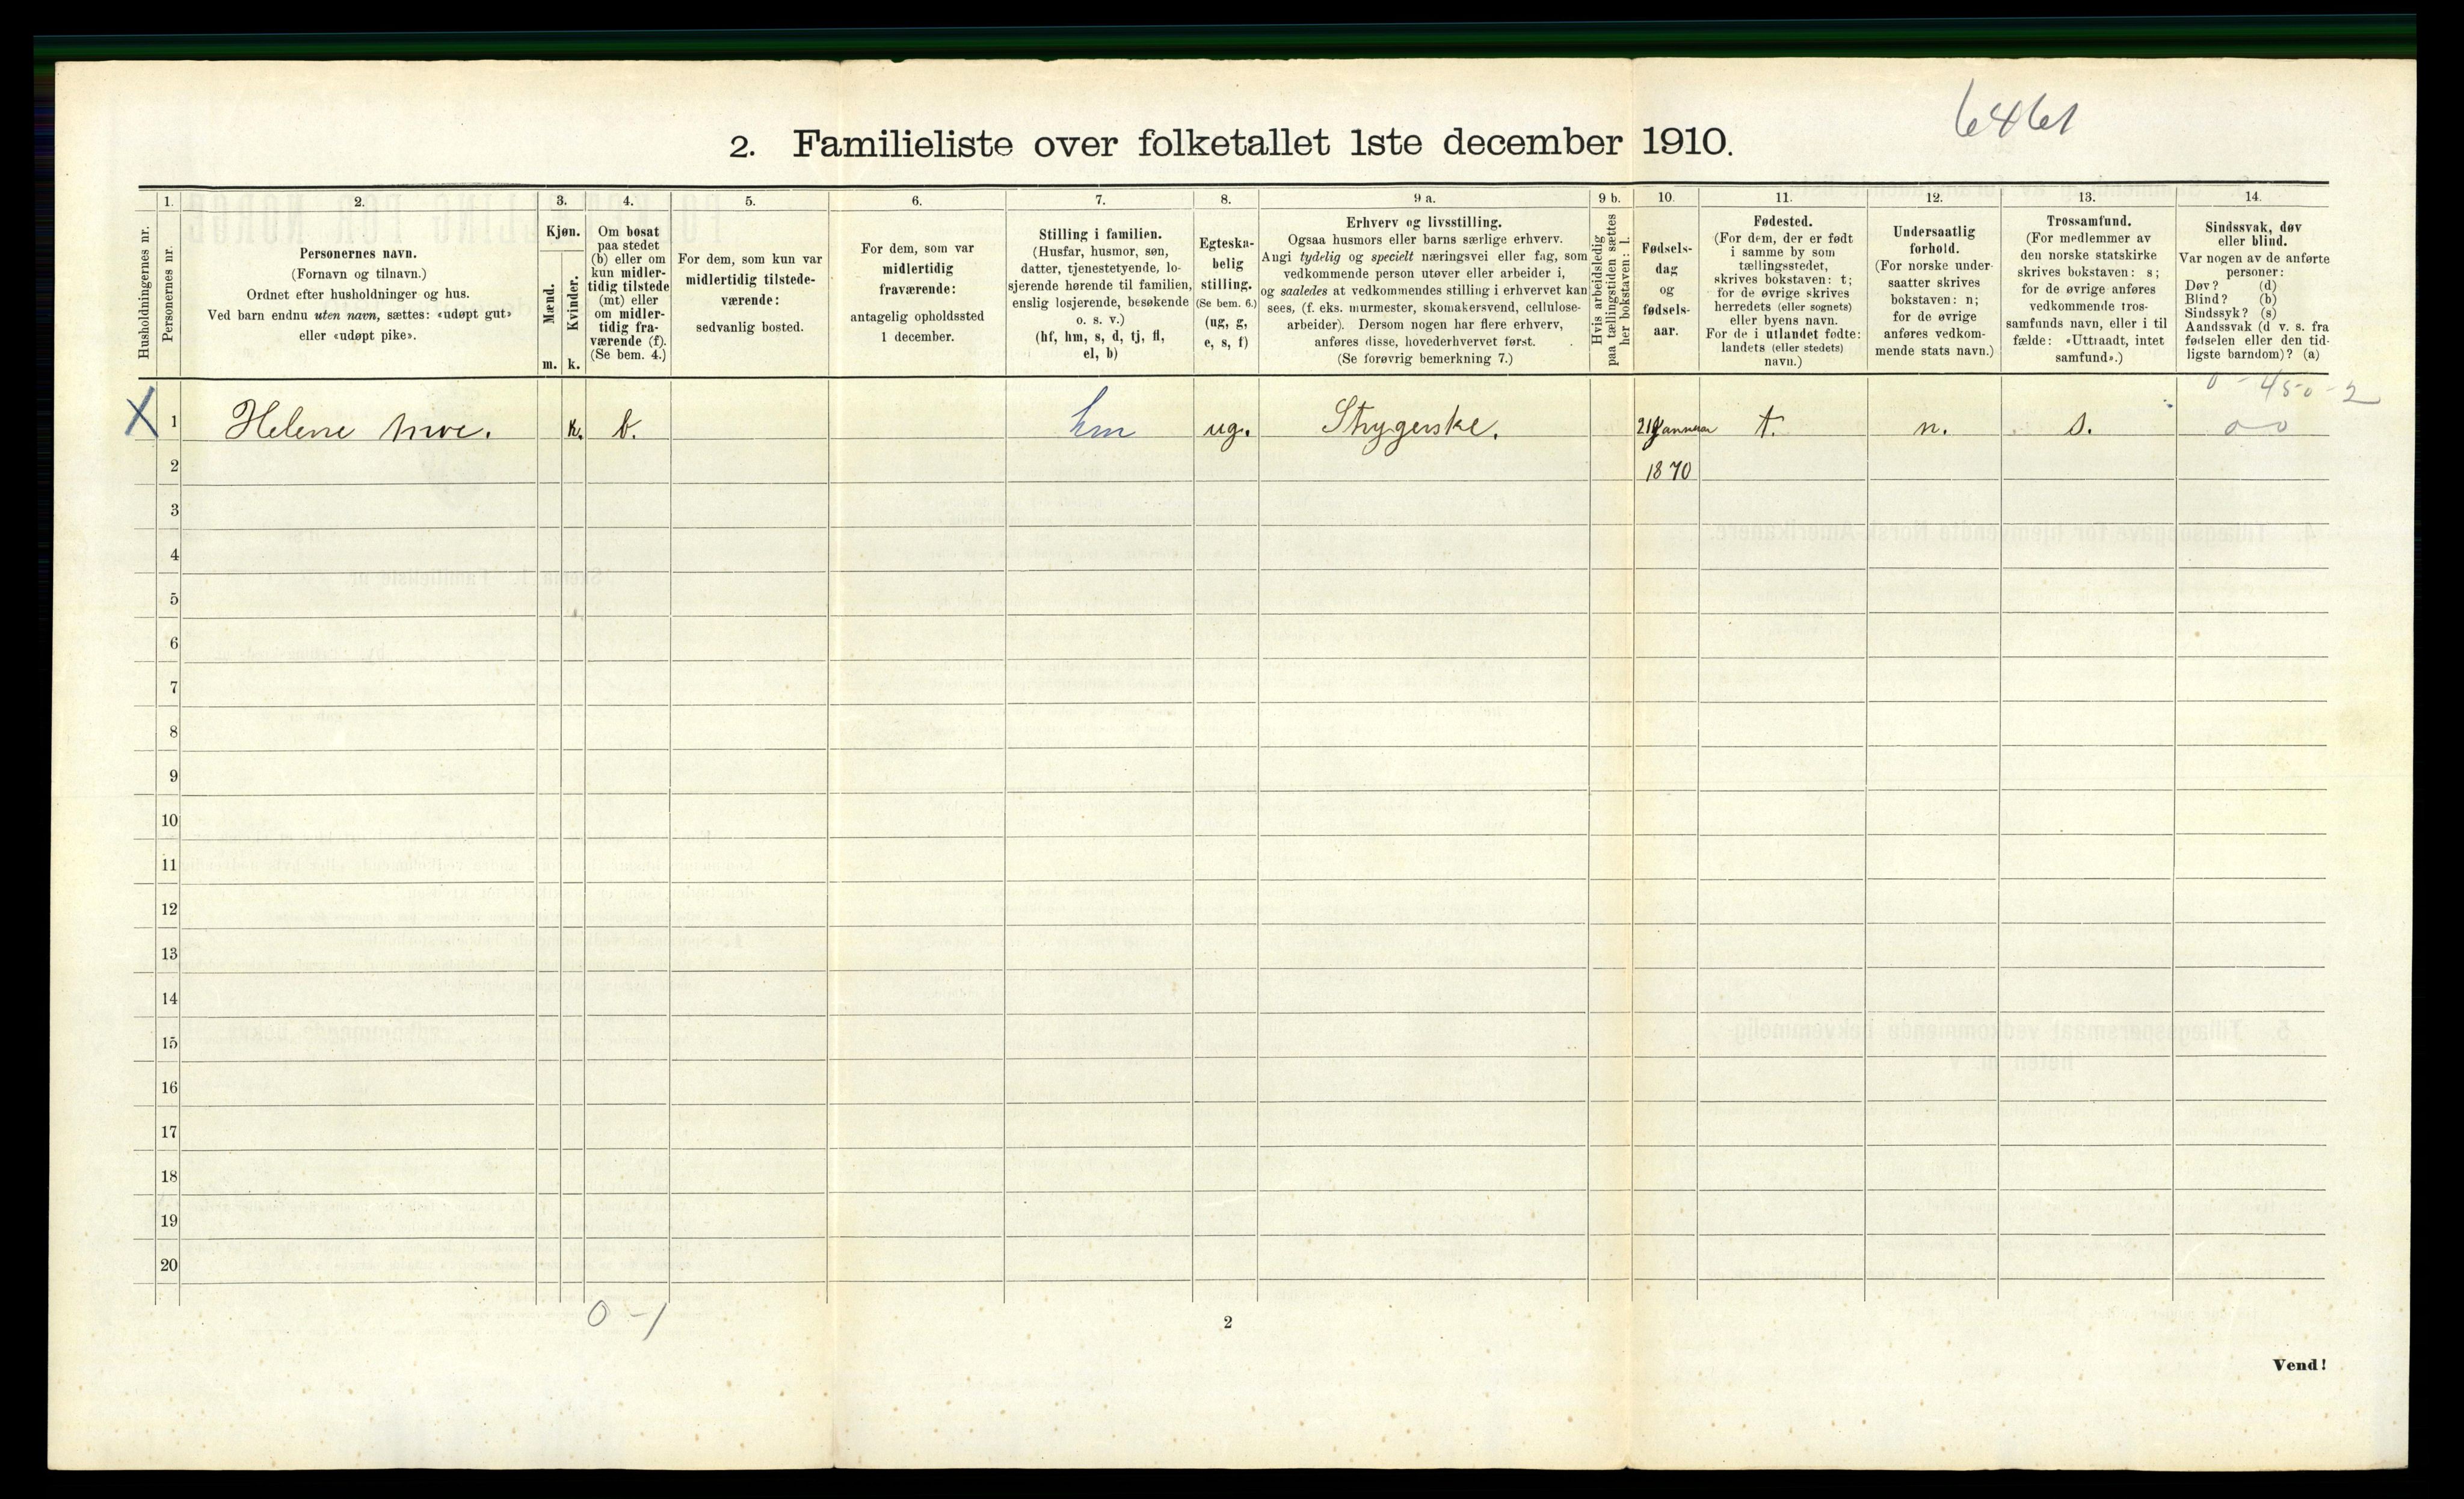 6461
2. Familieliste over folketallet 1ste december 1910.
Husholdningernes nr.
1.
Personernes nr.
2.
Personernes navn.
(Fornavn og tilnavn.)
Ordnet efter husholdninger og hus.
Ved barn endnu uten navn, sættes: «udøpt gut»
eller «udøpt pike».
3.
Kjøn.
Mænd.
Kvinder.
m. k.
4.
Om bosat
paa stedet
(b) eller om
kun midler-
tidig tilstede
(mt) eller
om midler-
tidig fra-
værende (f).
(Se bem. 4.)
5.
For dem, som kun var
midlertidig tilstede-
værende:
sedvanlig bosted.
6.
For dem, som var
midlertidig
fraværende:
antagelig opholdssted
1 december.
7.
Stilling i familien.
(Husfar, husmor, søn,
datter, tjenestetyende, lo-
sjerende hørende til familien,
enslig losjerende, besøkende
o. s. v.)
(hf, hm, s, d, tj, fl,
el, b)
8.
Egteska-
belig
stilling.
(Se bem. 6.)
(ug, g,
e, s, f)
9 a.
Erhverv og livsstilling.
Ogsaa husmors eller barns særlige erhverv.
Angi tydelig og specielt næringsvei eller fag, som
vedkommende person utøver eller arbeider i,
og saaledes at vedkommendes stilling i erhvervet kan
sees, (f. eks. murmester, skomakersvend, cellulose-
arbeider). Dersom nogen har flere erhverv,
anføres disse, hovederhvervet først.
(Se forøvrig bemerkning 7.)
9 b.
Hvis arbeidsledig
paa tællingstiden sættes
her bokstaven: l.
10.
Fødsels-
dag
og
fødsels-
aar.
11.
Fødested.
(For dem, der er født
i samme by som
tællingsstedet,
skrives bokstaven: t;
for de øvrige skrives
herredets (eller sognets)
eller byens navn.
For de i utlandet fødte:
landets (eller stedets)
navn.)
12.
Undersaatlig
forhold.
(For norske under-
saatter skrives
bokstaven: n;
for de øvrige
anføres vedkom-
mende stats navn.)
13.
Trossamfund.
(For medlemmer av
den norske statskirke
skrives bokstaven: s;
for de øvrige anføres
vedkommende tros-
samfunds navn, eller i til
fælde: «Uttraadt, intet
samfund».)
14.
Sindssvak, døv
eller blind.
Var nogen av de anførte
personer:
Døv? (d)
Blind? (b)
Sindssyk? (s)
Aandssvak (d v. s. fra
fødselen eller den tid-
ligste barndom)? (a)
0 - 450 - 2
X 1 Helene Moe. k. b. hm ug. Strygerske. 21 Januar t. n. s. 0 0
2 1870
3
4
5
6
7
8
9
10
11
12
13
14
15
16
17
18
19
20
0 - 1
2
Vend!